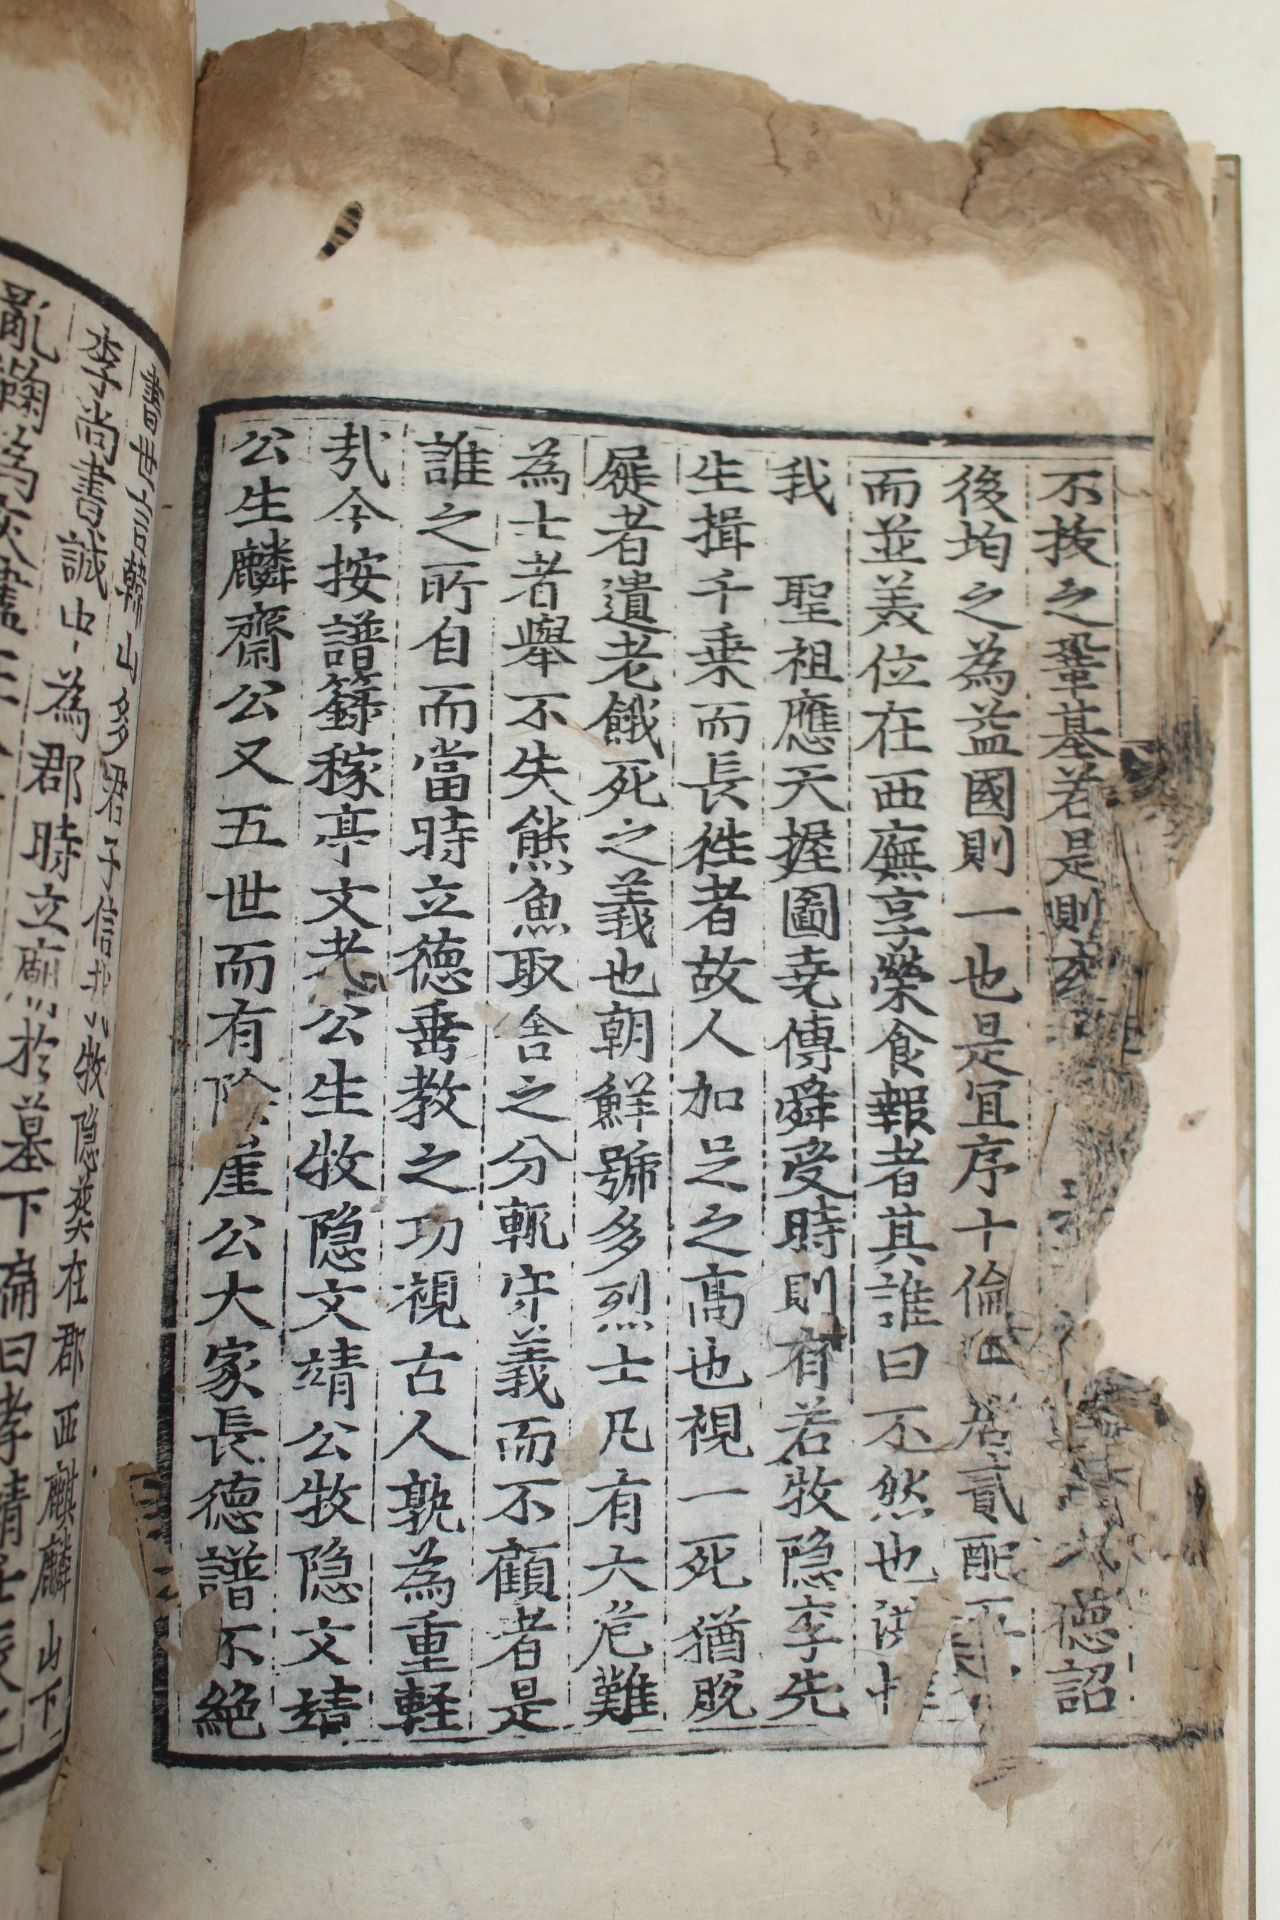 不拔之鞏基若是則玄德詔
後均之為益國則一也是宜序十倫貳配
而並美位在西廡享榮食報者其誰曰不然也
我 聖祖應天握圖堯傳舜受時則有若牧隐李先
生揖千乗而長徃者故人加足之高也視一死猶脫
屣者遺老餓死之義也朝鮮號多烈士凡有大危難
為士者舉不失熊魚取舍之分輒守義而不顧者是
誰之所自而當時立德垂教之功視古人孰為重軽
㢤今按譜籙稼亭文孝公生牧隐文靖公牧隐文靖
公生麟齋公又五世而有陰崖公大家長德譜不絶
書世言韓山多君子信哉牧隐葬在郡西麒麟山下
李尚書諴中為郡時立廟於墓下扁曰孝靖
亂鞠為灰